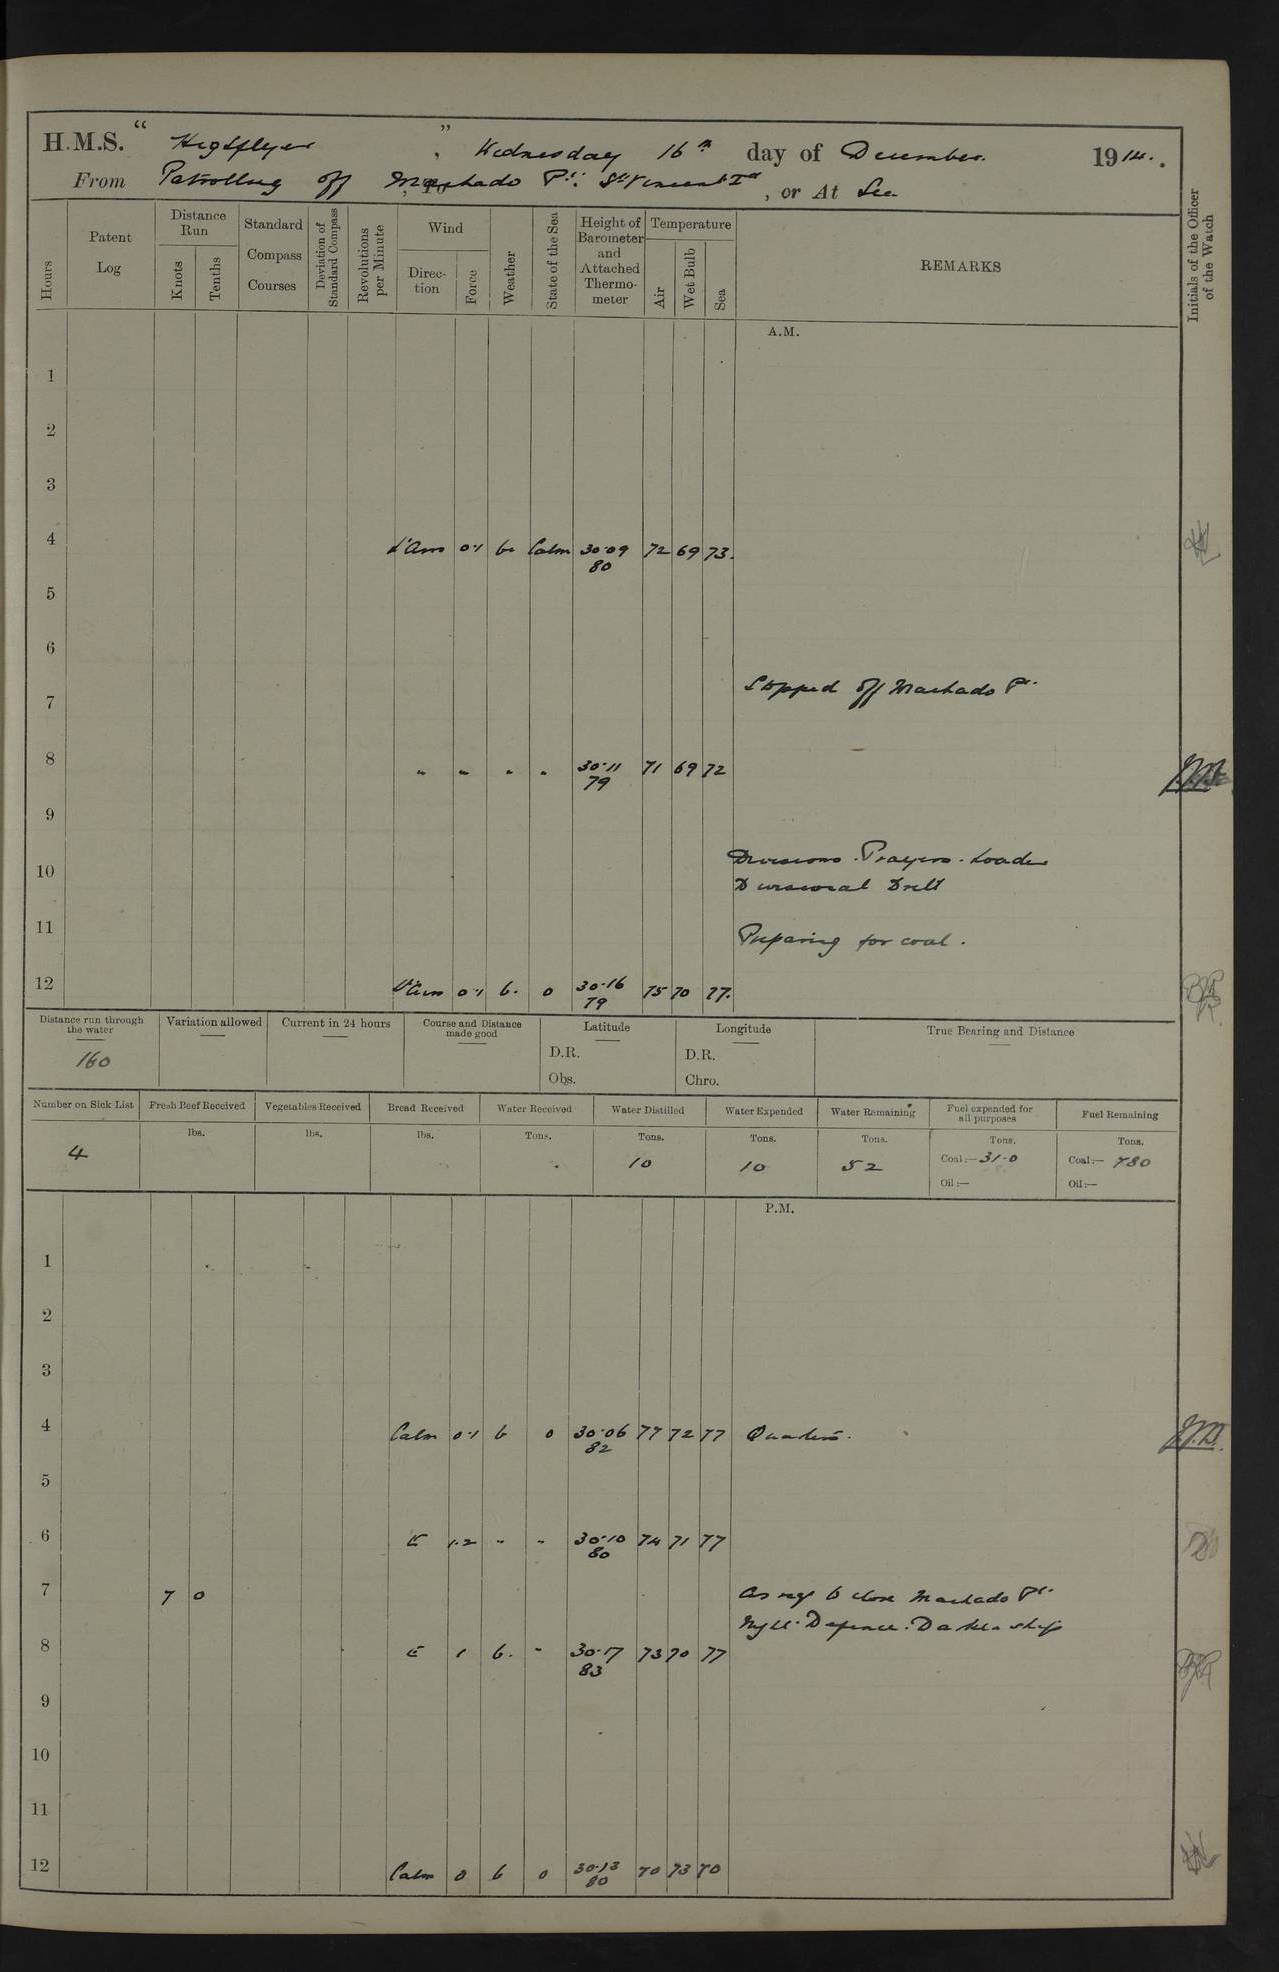 H.M.S. " Highflyer ", Wednesday 16th day of December. 1914.
From Patrolling off Machado Pt: St Vincent Id , To , or At Sea
Hours
Patent Log
Distance Run
Knots
Tenths
Standard Compass Courses
Deviation of Standard Compass
Revolutions per Minute
Wind
Direction
Force
Weather
State of the Sea
Height of Barometer and Attached Thermometer
Temperature
Air
Wet Bulb
Sea
REMARKS
Initials of the Officer of the Watch
A.M.
1
2
3
4 0·1 Calm 30·09 72 69 73.
80
5
6
Stopped off Machado Pt.
7
8 " " " " 30·11 71 69 72
79
9
Divisions. Prayers. Loader
10
Divisional Drill
11
Preparing for coal.
12 0·1 b. 0 30·16 75 70 77.
79
Distance run through the water
Variation allowed
Current in 24 hours
Course and Distance made good
Latitude
Longitude
True Bearing and Distance
160
D.R. D.R.
Obs. Chro.
Number on Sick List
Fresh Beef Received
Vegetables Received
Bread Received
Water Received
Water Distilled
Water Expended
Water Remaining
Fuel expended for all purposes
Fuel Remaining
lbs. lbs. lbs. Tons. Tons. Tons. Tons. Tons. Tons.
4 10 10 52 Coal:— 31·0 Coal:— 780
Oil:— Oil:—
P.M.
1
2
3
4 Calm 0·1 b 0 30·06 77 72 77 Quarters.
82
5
6 E 1.2 " " 30·10 74 71 77
80
7 7 0 As req to close Machado Pt.
Night Defence. Darken ship
8 E 1 b. " 30·17 73 70 77
83
9
10
11
12 Calm 0 b 0 30·13 70 73 70
80